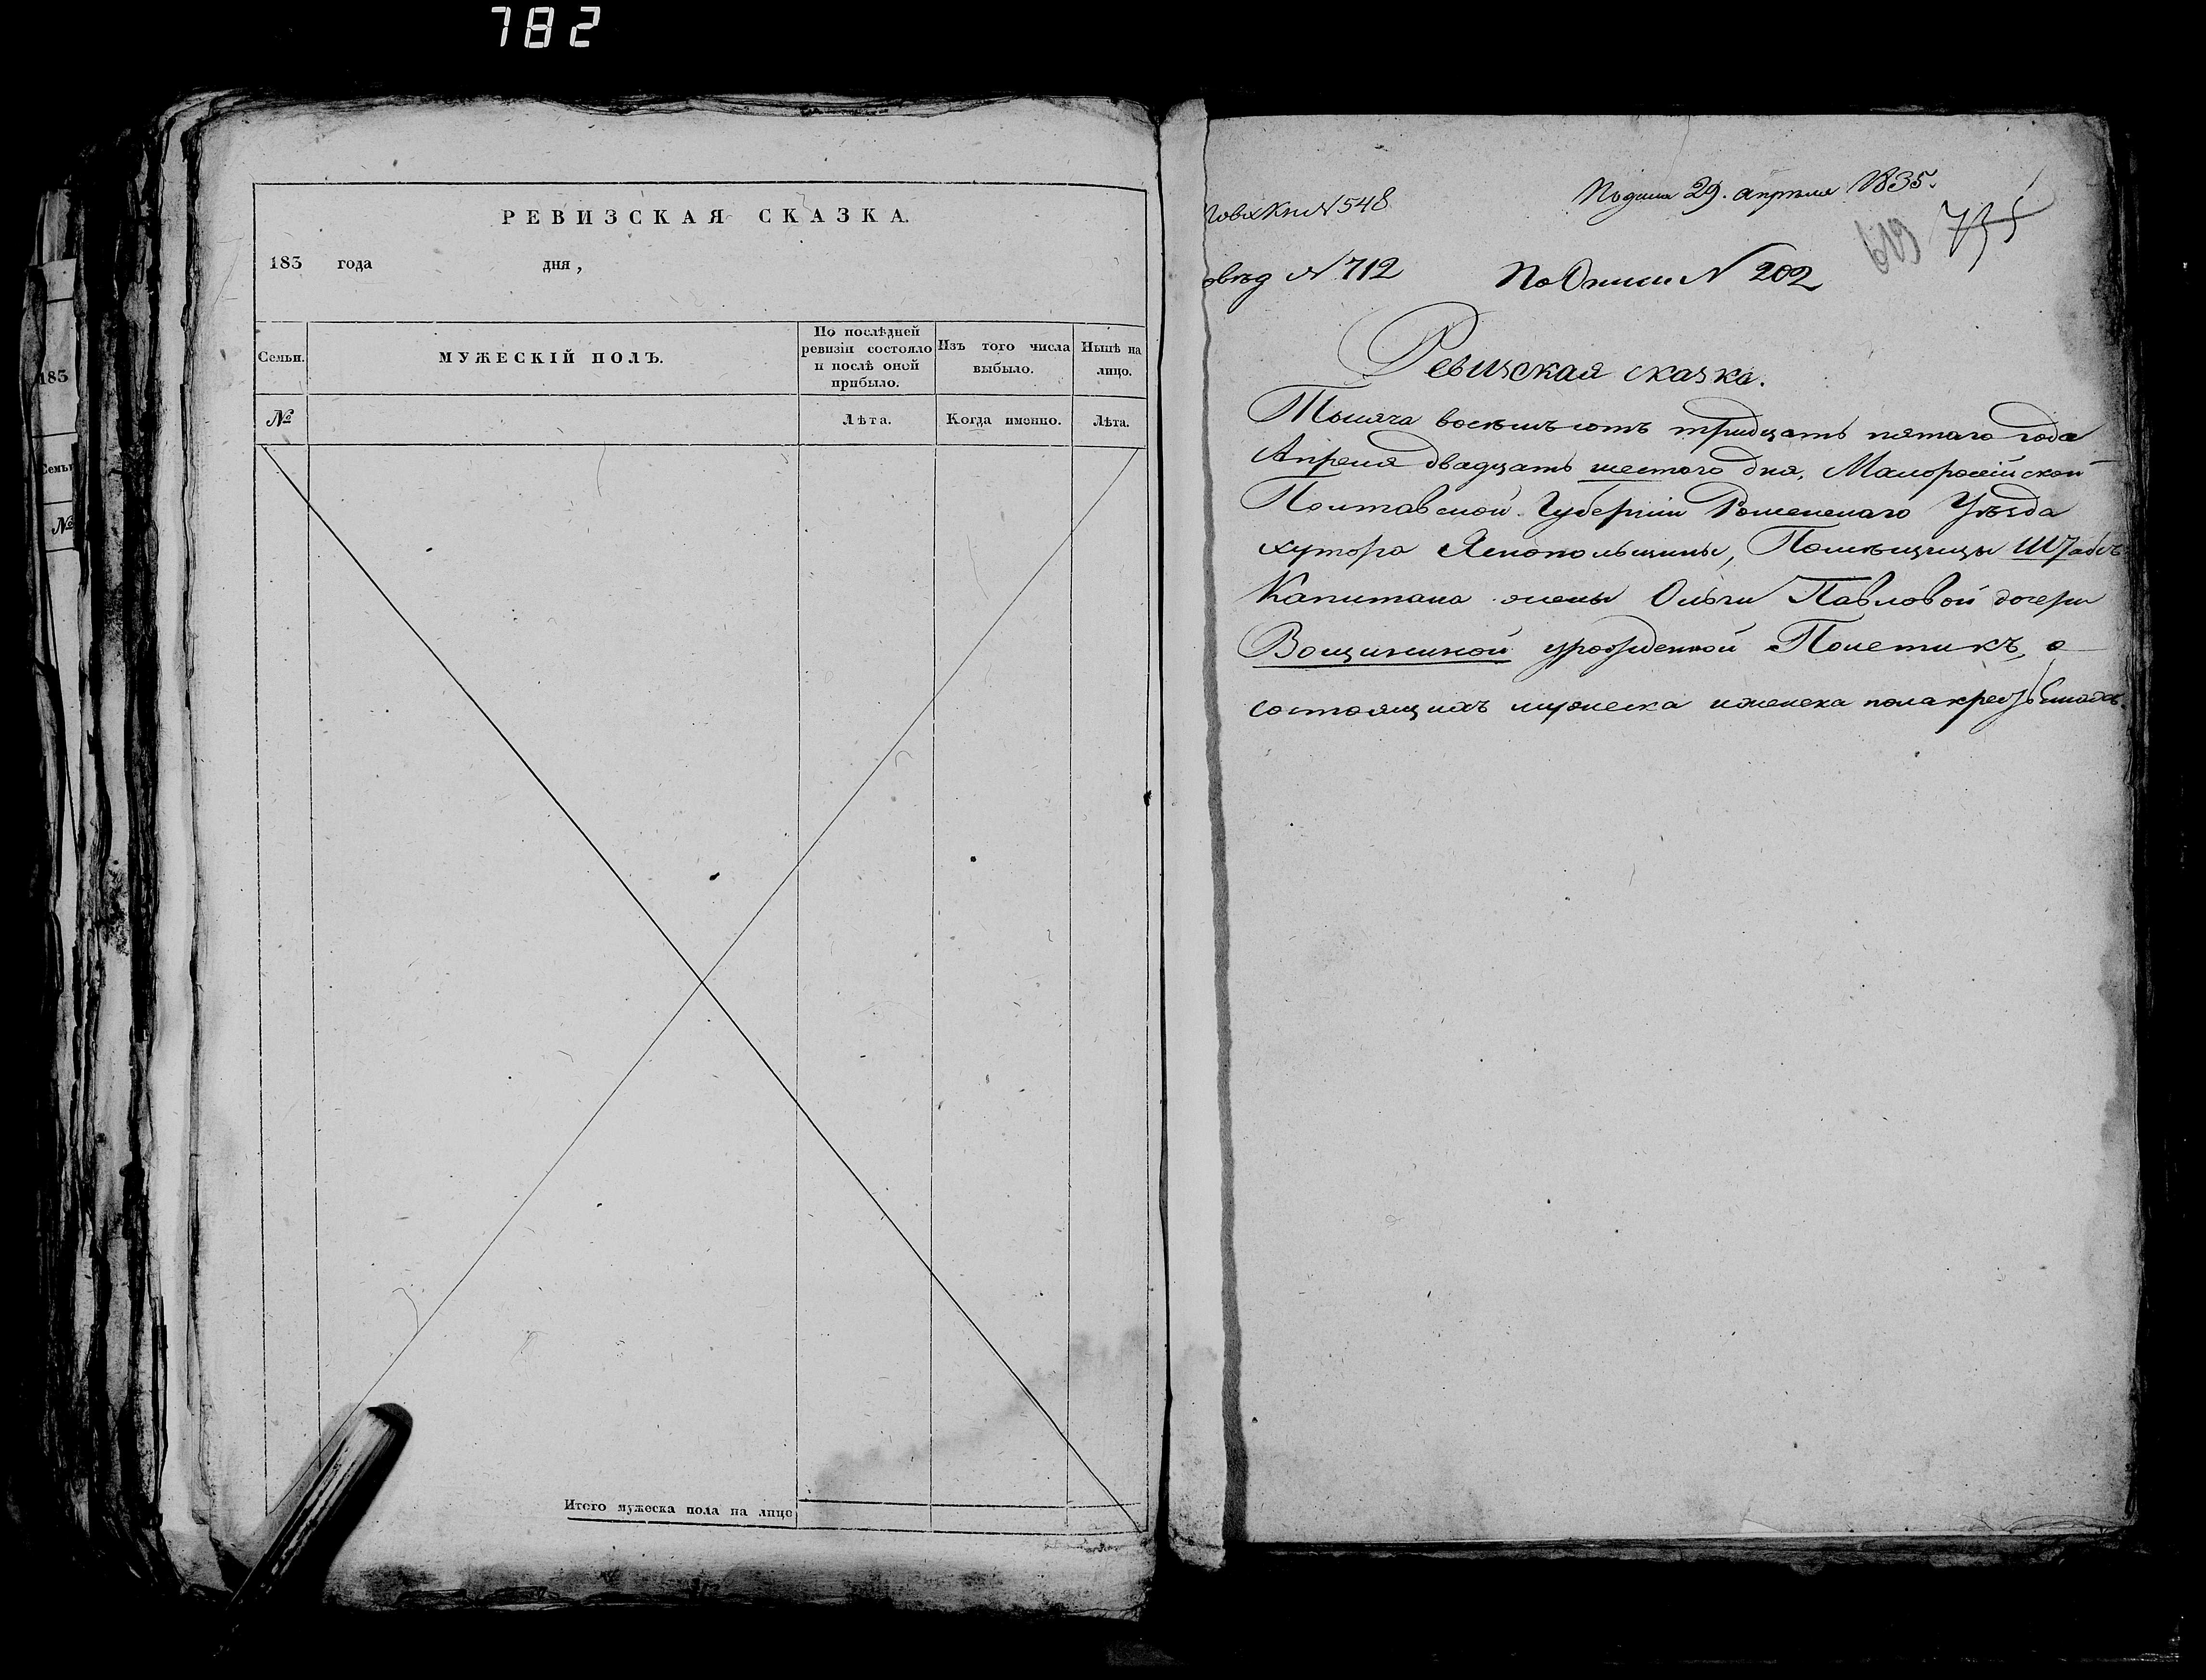 782
РЕВИЗСКАЯ СКАЗКА.
183 года дня,
Семьи.
МУЖЕСКІЙ ПОЛЪ.
По послѣдней ревизіи состояло и послѣ оной прибыло.
Изъ того числа выбыло.
Нынѣ на лицо.
№
Лѣта.
Когда именно.
Лѣта.
Итого мужеска пола на лице
183
Семьи
№
Подана 29. апрѣля 1835.
N 548
619
N 712
По Описи N 202
Ревизская сказка.
Тысяча восемьсотъ тридцать пятаго года
Апреля двадцать шестого дня, Малоросийской
Полтавской Губерніи Роменскаго Уѣзда
хутора Яснопольщины, Помѣщицы Штабсъ
Капитана жены Ольги Павловой дочери
Вощининой урожденной Полетикъ, о
состоящихъ мужеска и женска пола крестьянахъ